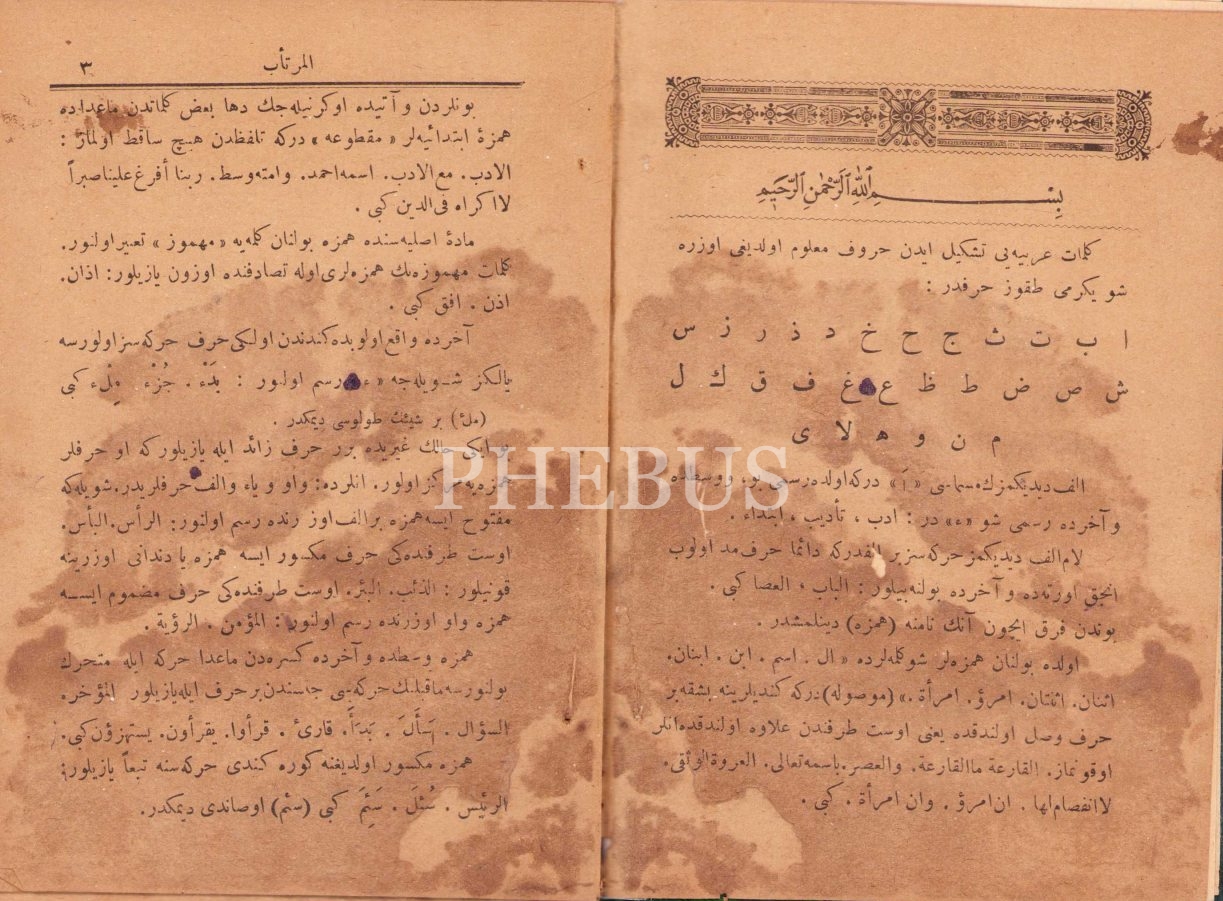 بِسْــــــمِ اللّٰهِ الرَّحْمٰنِ الرَّحِيمِ
كلمات عربيه‌يى تشكيل ايدن حروف معلوم اولديغى اوزره
شو يكرمى طقوز حرفدر :
ا ب ت ث ج ح خ د ذ ر ز س
ش ص ض ط ظ ع غ ف ق ك ل
م ن و ه لا ى
الف ديديكمزك مسماسى « أ » دركه اولده رسمى بو، ووسطده
و آخرده رسمى شو « ء » در : ادب ، تأديب ، ابتداء .
لام الف ديديكمز حركه‌سز بر الفدركه دائما حرف مد اولوب
انجق اورته‌ده و آخرده بولنه‌بيلور : الباب ، العصا كبى .
بوندن فرق ايچون آنك نامنه (همزه) دينلمشدر .
اولده بولنان همزه‌لر شوكله‌لرده « ال . اسم . ابن . ابنان.
اثنان. اثنتان. امرؤ. امرأة .» (موصوله) دركه كنديلرينه بشقه‌بر
حرف وصل اولندقده يعنى اوست طرفندن علاوه اولندقده‌انلر
اوقونماز. القارعة ماالقارعة. والعصر. باسمه‌تعالى. العروة‌الوثقى.
لاانفصام‌لها . ان‌امرؤ . وان امرأة . كبى .
المرتأب ٣
بونلردن و آتيده اوكرنيله‌جك دها بعض كلماتدن ماعداده
همزۀ ابتدائيه‌لر « مقطوعه » دركه تلفظدن هيچ ساقط اولماز :
الادب . مع‌الادب . اسمه‌احمد. وامته‌وسط. ربنا أفرغ علیناصبراً
لااكراه فى‌الدين كبى .
مادۀ اصليه‌سنده همزه بولنان كله‌يه « مهموز » تعبير اولنور.
كلمات مهموزه‌نك همزه‌لرى اوله تصادفنده اوزون يازيلور: اذان.
اذن . افق كبى .
آخرده واقع اولوبده كندندن اولكى حرف حركه‌سز اولورسه
يالكز شــويله‌جه « ء » رسم اولنور : بَدْء . جُزْء . مِلْء كبى
(ملأ) بر شيئك طولوسى ديمكدر .
ايكى حالك غيريده برر حرف زائد ايله يازيلوركه او حرفلر
همزه‌يه مركز اولور. انلرده: واو و ياء والف حرفلريدر. شويله‌كه
مفتوح ايسه همزه برالف اوزرنده رسم اولنور: الرأس. البأس.
اوست طرفنده‌كى حرف مكسور ايسه همزه يا دندانى اوزرينه
قونيلور : الذئب. البئر. اوست طرفنده‌كى حرف مضموم ايسـه
همزه واو اوزرنده رسم اولنور : المؤمن . الرؤية .
همزه وسطده و آخرده كسره‌دن ماعدا حركه ايله متحرك
بولنورسه ماقبلنك حركه‌سى جنسندن برحرف ايله‌يازيلور المؤخر.
السؤال . يَسأَلَ . بَدَأَ . قارئ . قرأوا. يقرأون. يستهزؤن كبى.
همزه مكسور اولديغنه كوره كندى حركه‌سنه تبعاً يازيلور:
الرئيس . سُئلَ . سَئِمَ كبى (سئم) اوصاندى ديمكدر.
PHEBUS